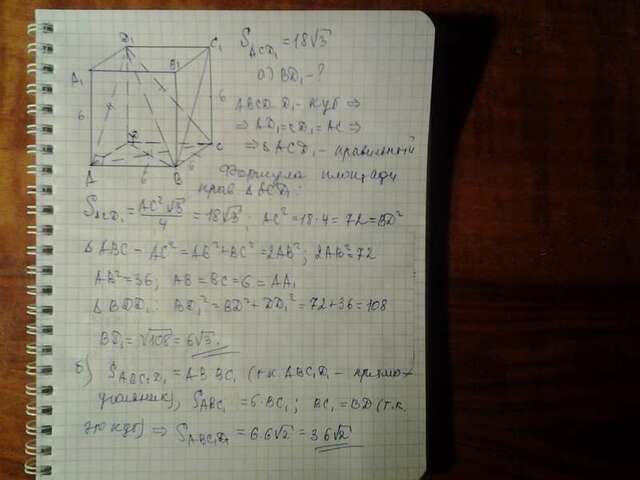 D₁
C₁
A₁
B₁
6
6
D
C
A
6
B
6
S_ACD₁ = 18√3
а) BD₁ - ?
ABCD..D₁ - куб ⇒
⇒ AD₁ = CD₁ = AC ⇒
⇒ ΔACD₁ - правильный
Формула площади
прав Δ ACD₁:
S_ACD₁ = AC²√3/4 = 18√3; AC² = 18·4 = 72 = BD²
Δ ABC - AC² = AB² + BC² = 2AB²; 2AB² = 72
AB² = 36; AB = BC = 6 = AA₁
Δ BDD₁: BD₁² = BD² + DD₁² = 72 + 36 = 108
BD₁ = √108 = 6√3.
б) S_ABC₁D₁ = AB·BC₁ (т.к. ABC₁D₁ - прямо-
угольник), S_ABC₁ = 6·BC₁; BC₁ = BD (т.к.
это куб) ⇒ S_ABC₁D₁ = 6·6√2 = 36√2